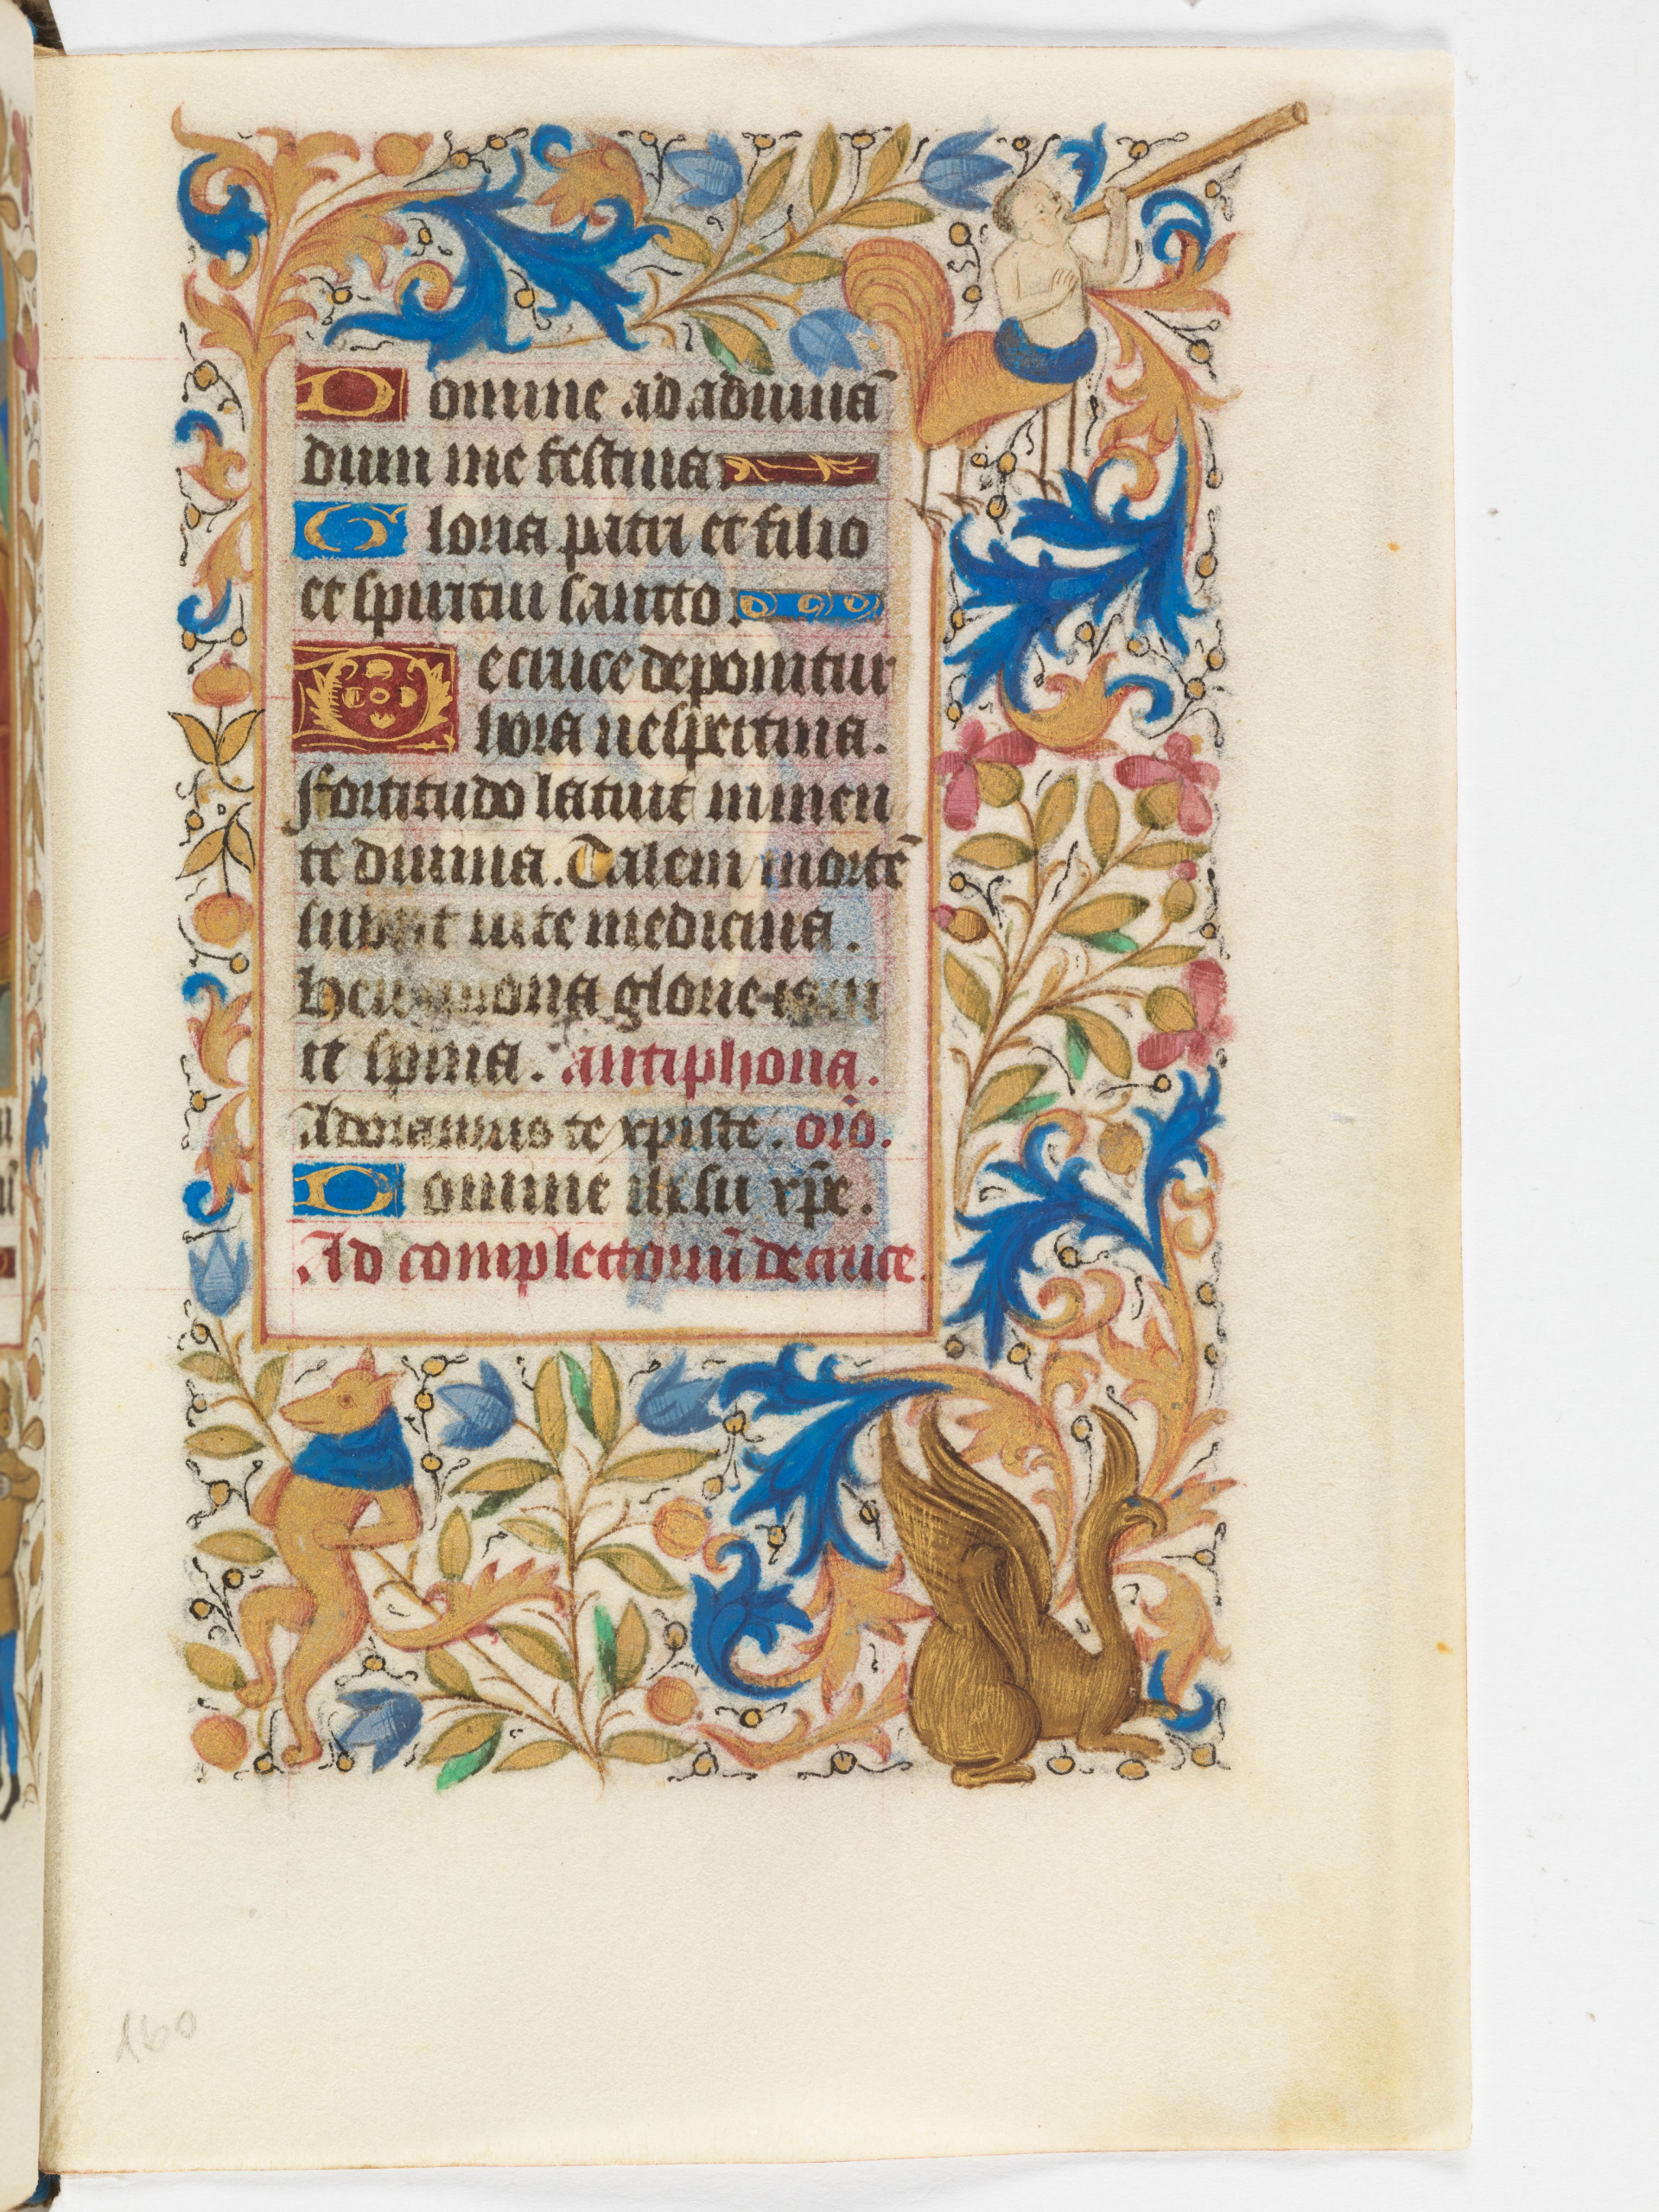 Domine ad adiuuā
dum me festina.
Gloria patri et filio
et spiritui sancto.
De cruce deponitur
hora uespertina.
Fortitudo latuit in men
te diuina. Talem mortē
subiit uite medicina.
Heu corona glorie iacu
it supina. antiphona.
Adoramus te xpiste. orō.
Domine ihesu xp̄e.
Ad completoriū de cruce.
160